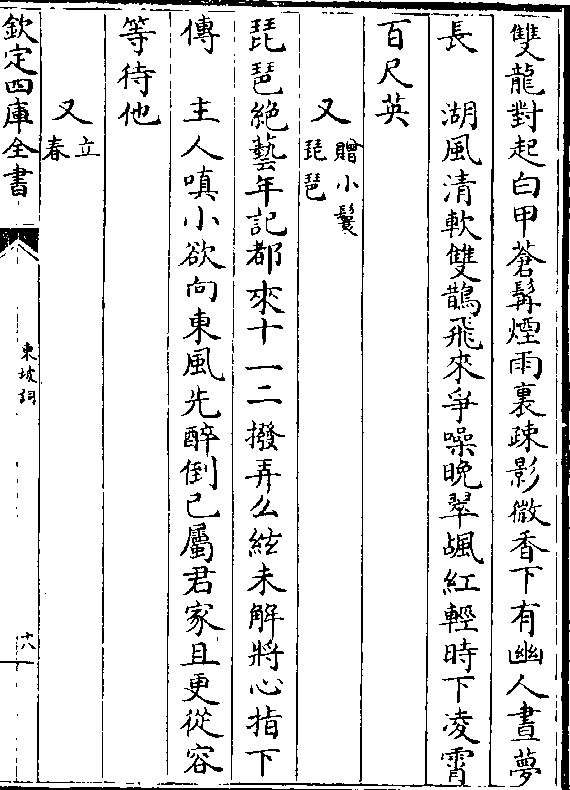 雙龍對起白甲蒼髯煙雨裏疎影微香下有幽人晝夢
長　湖風清軟雙鵲飛來爭噪晚翠颭紅輕時下凌霄
百尺英
又 贈小鬟琵琶
琵琶絶藝年記都來十一二撥弄么絃未解將心指下
傳　主人嗔小欲向東風先醉倒已屬君家且更從容
等待他
又 立春
欽定四庫全書
東坡詞
十八